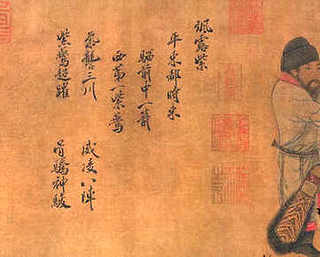 颯露紫
平東都時乘
前中一箭
西第一紫鷰
氣讋三川 威凌八陣
紫鷰超躍 骨騰神駿